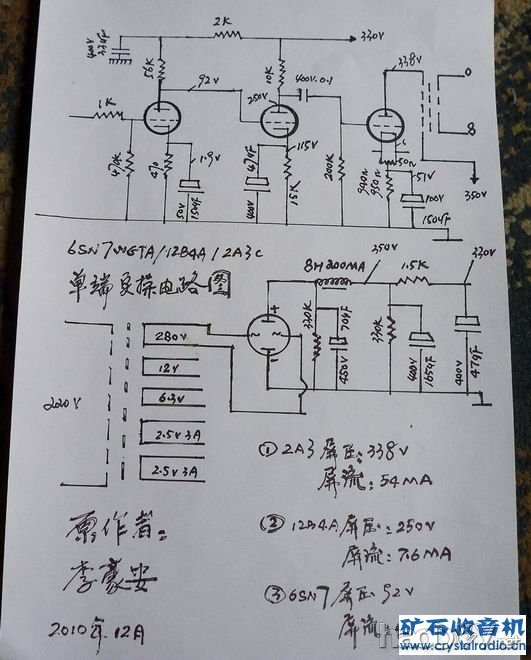 2K
330V
400V
22uF
56K
92V
10K
250V
400V.0.1
338V
0
8
350V
1K
470K
470
1.9V
50V
150uF
47uF
400V
115V
15K
200K
50Ω
51V
100V
150uF
6SN7WGTA/12B4A/2A3C
单端实操电路图
8H200MA
350V
1.5K
330V
330K
70uF
450V
330K
400V
165uF
400V
47uF
220V
280V
12V
6.3V
2.5V 3A
2.5V 3A
① 2A3 屏压:338V
屏流:54MA
② 12B4A 屏压:250V
屏流:7.6MA
③ 6SN7 屏压:92V
屏流:
原作者:
李豪
2010年.12月
矿石收音机
www.crystalradio.cn